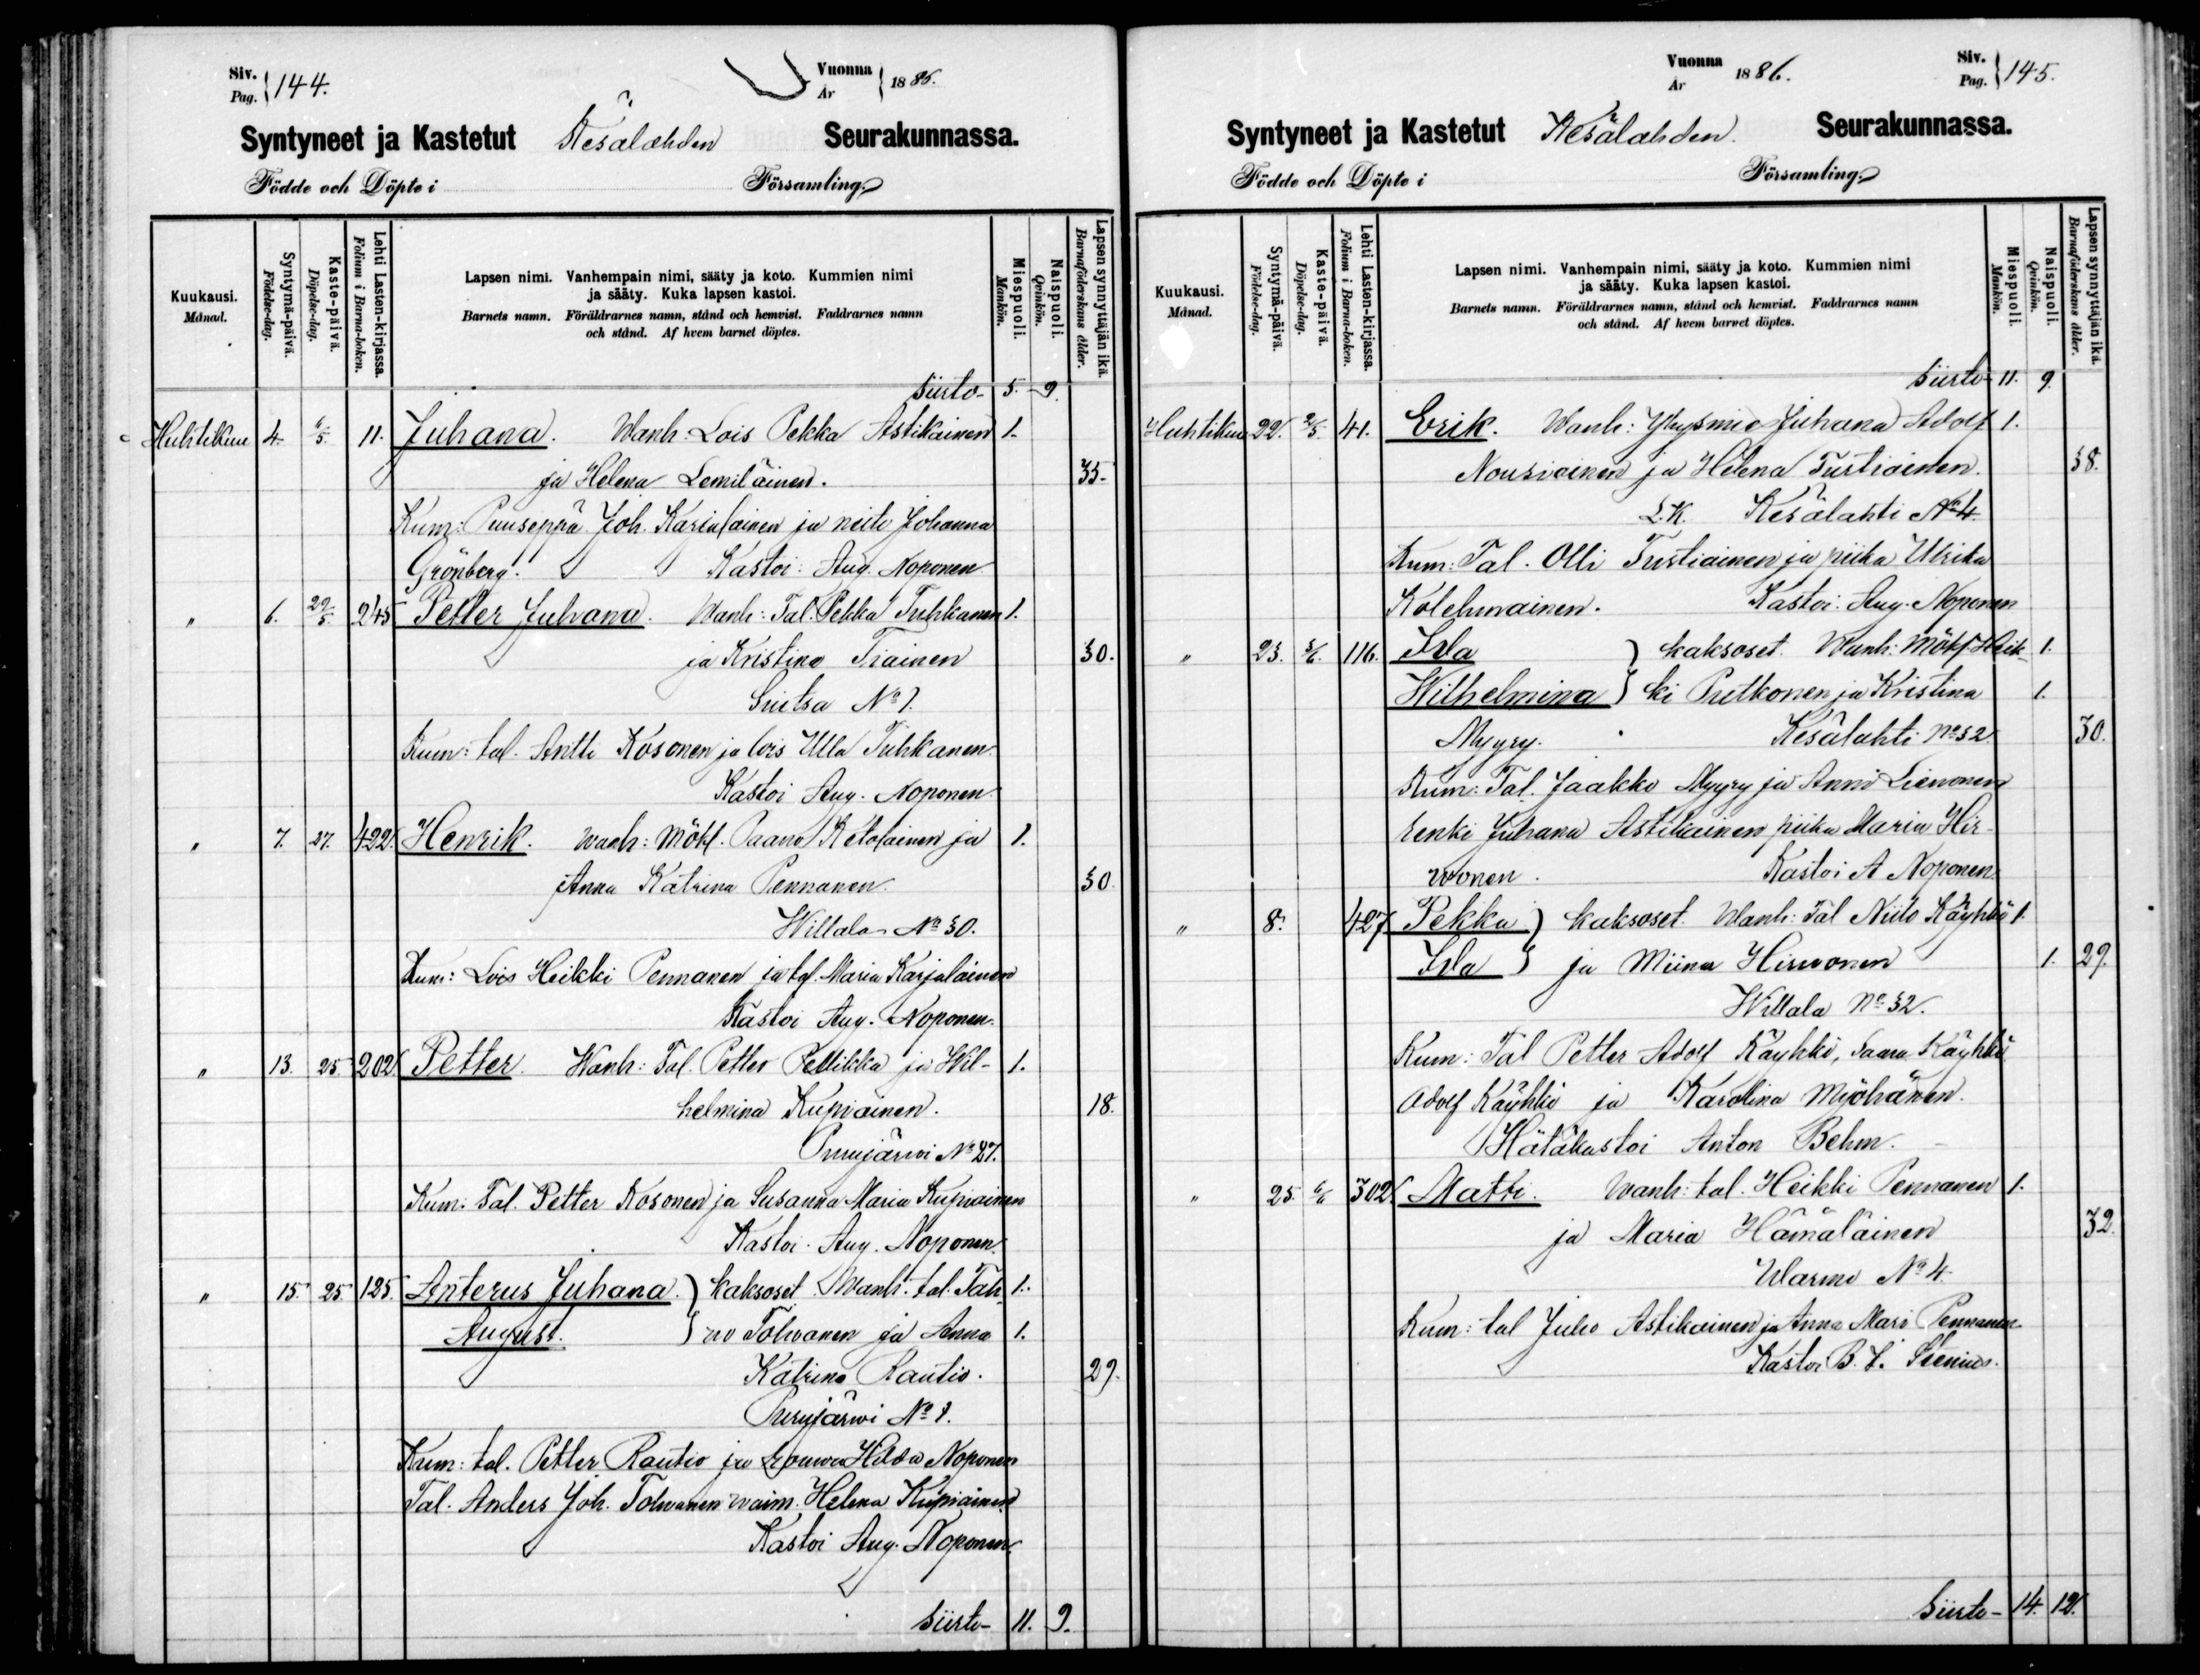 Siv. Pag. 144.
Vuonna År 1886.
Syntyneet ja Kastetut Kesälahden Seurakunnassa.
Födde och Döpte i Församling.
Kuukausi. Månad.
Syntymä-päivä. Födelse-dag.
Kaste-päivä. Döpelse-dag.
Lehti Lasten-kirjassa. Folium i Barna-boken.
Lapsen nimi. Vanhempain nimi, sääty ja koto. Kummien nimi
ja sääty. Kuka lapsen kastoi.
Barnets namn. Föräldrarnes namn, stånd och hemvist. Faddrarnes namn
och stånd. Af hvem barnet döptes.
Miespuoli. Mankön.
Naispuoli. Qvinkön.
Lapsen synnyttäjän ikä. Barnaföderskans ålder.
Siirto- 5. 9.
Huhtikuu 4. 6/5. 11. Juhana. Wanh: Lois Pekka Astikainen 1.
ja Helena Lemiläinen. 35.
Kum: Puuseppä Joh. Karjalainen ja neiti Johanna
Grönberg. Kastoi: Aug. Noponen
" 6. 29/5 245 Petter Juhana. Wanh: Tal. Pekka Tuhkanen 1.
ja Kristina Tiainen 30.
Suitsa No 1.
Kum: tal. Antti Kosonen ja lois Ulla Tuhkanen.
Kastoi Aug. Noponen.
" 7. 27. 422. Henrik. Wanh: Mökl. Paavo Ketolainen ja 1.
Anna Katrina Pennanen. 30.
Willala No 30.
Kum: Lois Heikki Pennanen ja tal. Maria Karjalainen
Kastoi Aug. Noponen.
" 13. 25. 202. Petter. Wanh: Tal. Petter Pellikka ja Wil- 1.
helmina Kupiainen. 18.
Purujärwi No 27.
Kum: Tal. Petter Kosonen ja Susanna Maria Kupiainen
Kastoi. Aug. Noponen.
" 15. 25. 125. Anterus Juhana. } kaksoset. Wanh: tal. Tah- 1.
August. } wo Tolwanen ja Anna 1.
Katrina Rautio. 29.
Purujärwi No 1.
Kum: tal. Petter Rautio ja rouwa Hilda Noponen
Tal. Anders Joh. Tolwanen waim. Helena Kupiainen
Kastoi Aug. Noponen.
Siirto- 11. 9.
Vuonna År 1886.
Siv. Pag. 145.
Syntyneet ja Kastetut Kesälahden. Seurakunnassa.
Födde och Döpte i Församling.
Kuukausi. Månad.
Syntymä-päivä. Födelse-dag.
Kaste-päivä. Döpelse-dag.
Lehti Lasten-kirjassa. Folium i Barna-boken.
Lapsen nimi. Vanhempain nimi, sääty ja koto. Kummien nimi
ja sääty. Kuka lapsen kastoi.
Barnets namn. Föräldrarnes namn, stånd och hemvist. Faddrarnes namn
och stånd. Af hvem barnet döptes.
Miespuoli. Mankön.
Naispuoli. Qvinkön.
Lapsen synnyttäjän ikä. Barnaföderskans ålder.
Siirto- 11. 9.
Huhtikuu 22. 2/5. 41. Erik. Wanh: Yhysmies Juhana Adolf 1.
Nousiainen ja Helena Tustiainen. 38.
L.K. Kesälahti No 4.
Kum: Tal. Olli Tustiainen ja piika Ulrika
Kolehmainen. Kastoi: Aug. Noponen
" 23. 3/6. 116. Isla } kaksoset. Wanh: Mökl. Heik- 1.
Wilhelmina } ki Putkonen ja Kristina 1.
Myyry. Kesälahti No 32. 30.
Kum: Tal. Jaakko Myyry ja Anni Lienonen
renki Juhana Astikainen piika Maria Hir-
wonen. Kastoi A Noponen.
" 8. 427 Pekka } kaksoset. Wanh: Tal Niilo Käyhkö 1.
Isla } ja Miina Hirwonen 1. 29.
Willala No 32.
Kum: Tal Petter Adolf Käyhkö, Saara Käyhkö
Adolf Käyhkö ja Karolina Myöhänen.
Hätäkastoi Anton Behm.
" 25. 6/6 302. Matti. Wanh: tal. Heikki Pennanen 1.
ja Maria Hämäläinen 32.
Warmo No 4.
Kum: tal Juho Astikainen ja Anna Mari Pennanen
Kastoi B. F. Stenius.
Siirto- 14. 12.